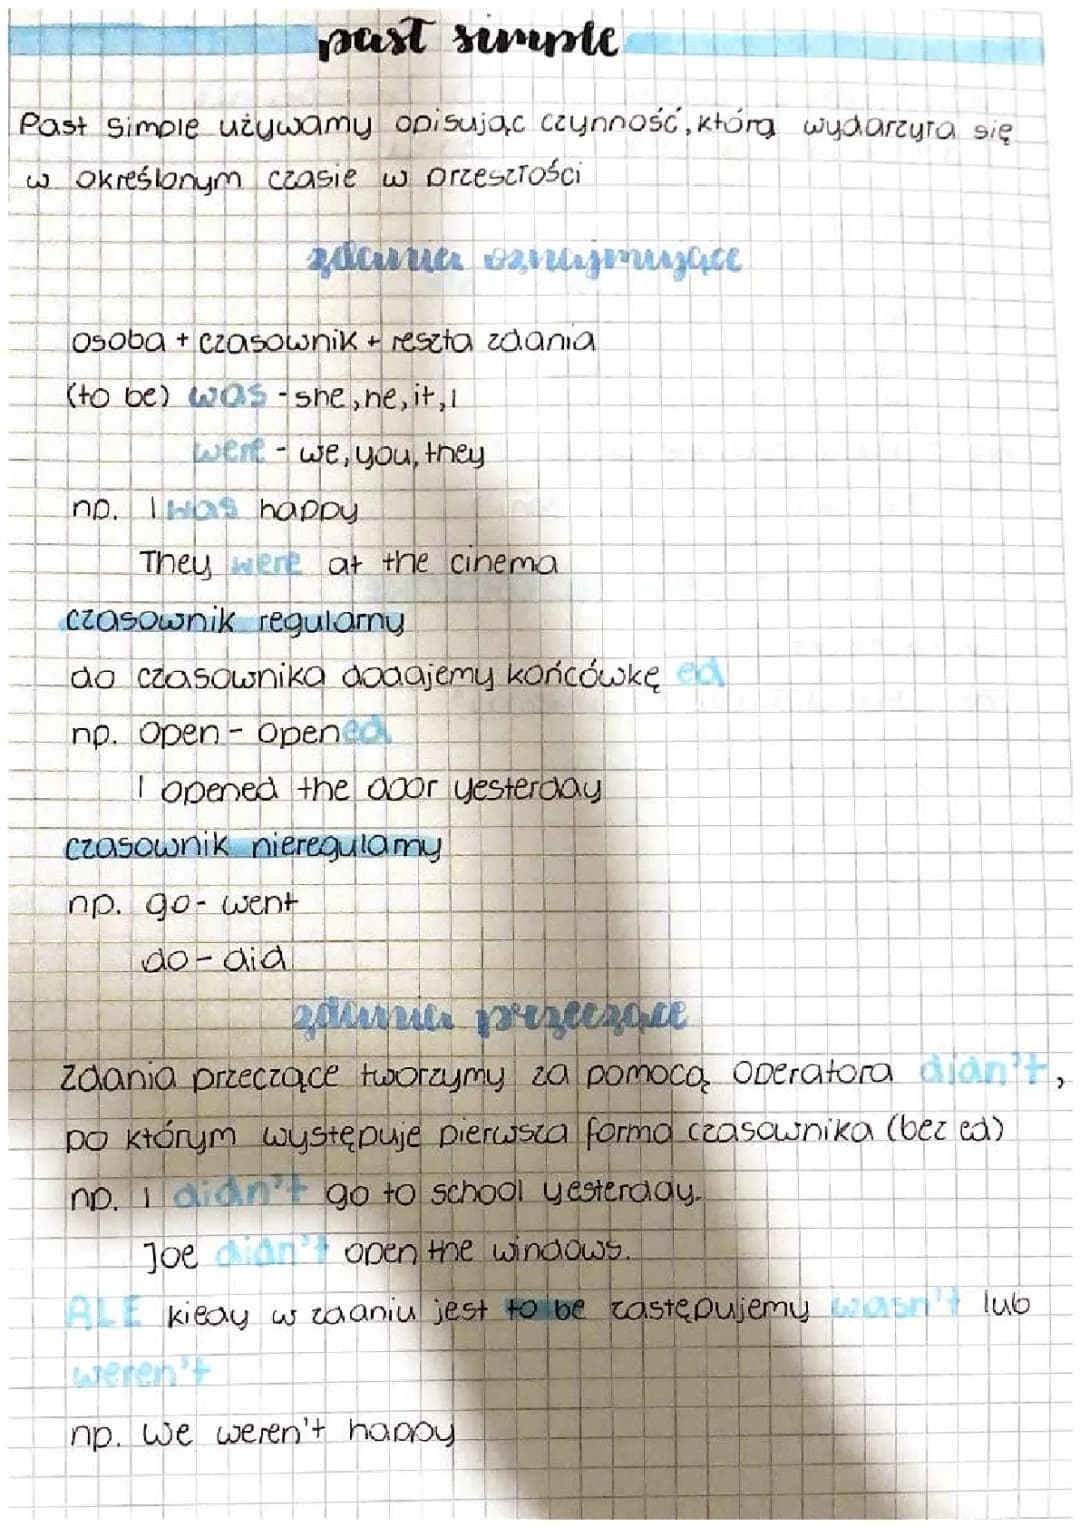 past simple
Past Simple używamy opisując czynność, którą wydarzyła się
w określonym czasie w przeszłości
zdania oznajmujące
osoba + czasownik + reszta zdania
(to be) was - she, he, it, I
were - we, you, they
np. I was happy
They were at the cinema
czasownik regularny
do czasownika dodajemy końcówkę ed
np. open - opened
I opened the door yesterday
czasownik nieregularny
np. go - went
do - did
zdania przeczące
Zdania przeczące tworzymy za pomocą operatora didn't,
po którym występuje pierwsza forma czasownika (bez ed)
np. I didn't go to school yesterday.
Joe didn't open the windows.
ALE kiedy w zdaniu jest to be zastępujemy wasn't lub
weren't
np. We weren't happy